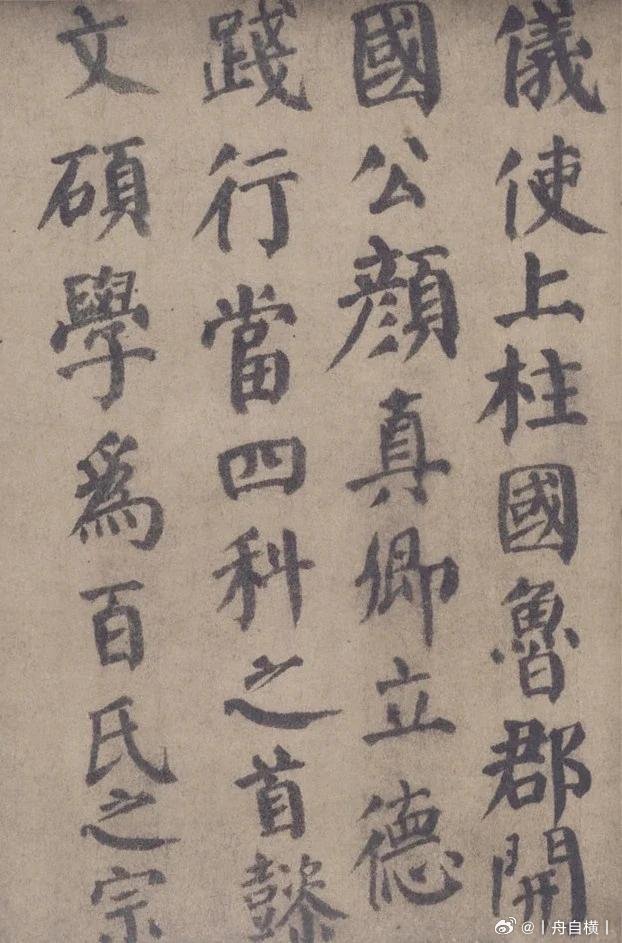 儀使上柱國魯郡開
國公顏真卿立德
踐行當四科之首懿
文碩學為百氏之宗
@丨舟自横丨